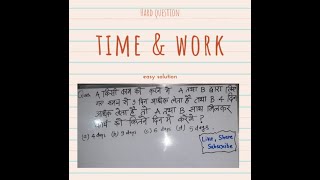 HARD QUESTION
TIME & WORK
easy solution
A किसी काम को करने में A तथा B द्वारा
काम में 9 दिन अधिक लेता है तथा B 4 दिन
अधिक लेता है तो A तथा B साथ मिलकर
कार्य को कितने दिन में करेंगे ?
(a) 4 days (b) 9 days (c) 6 days (d) 5 days
Like, Share
Subscribe